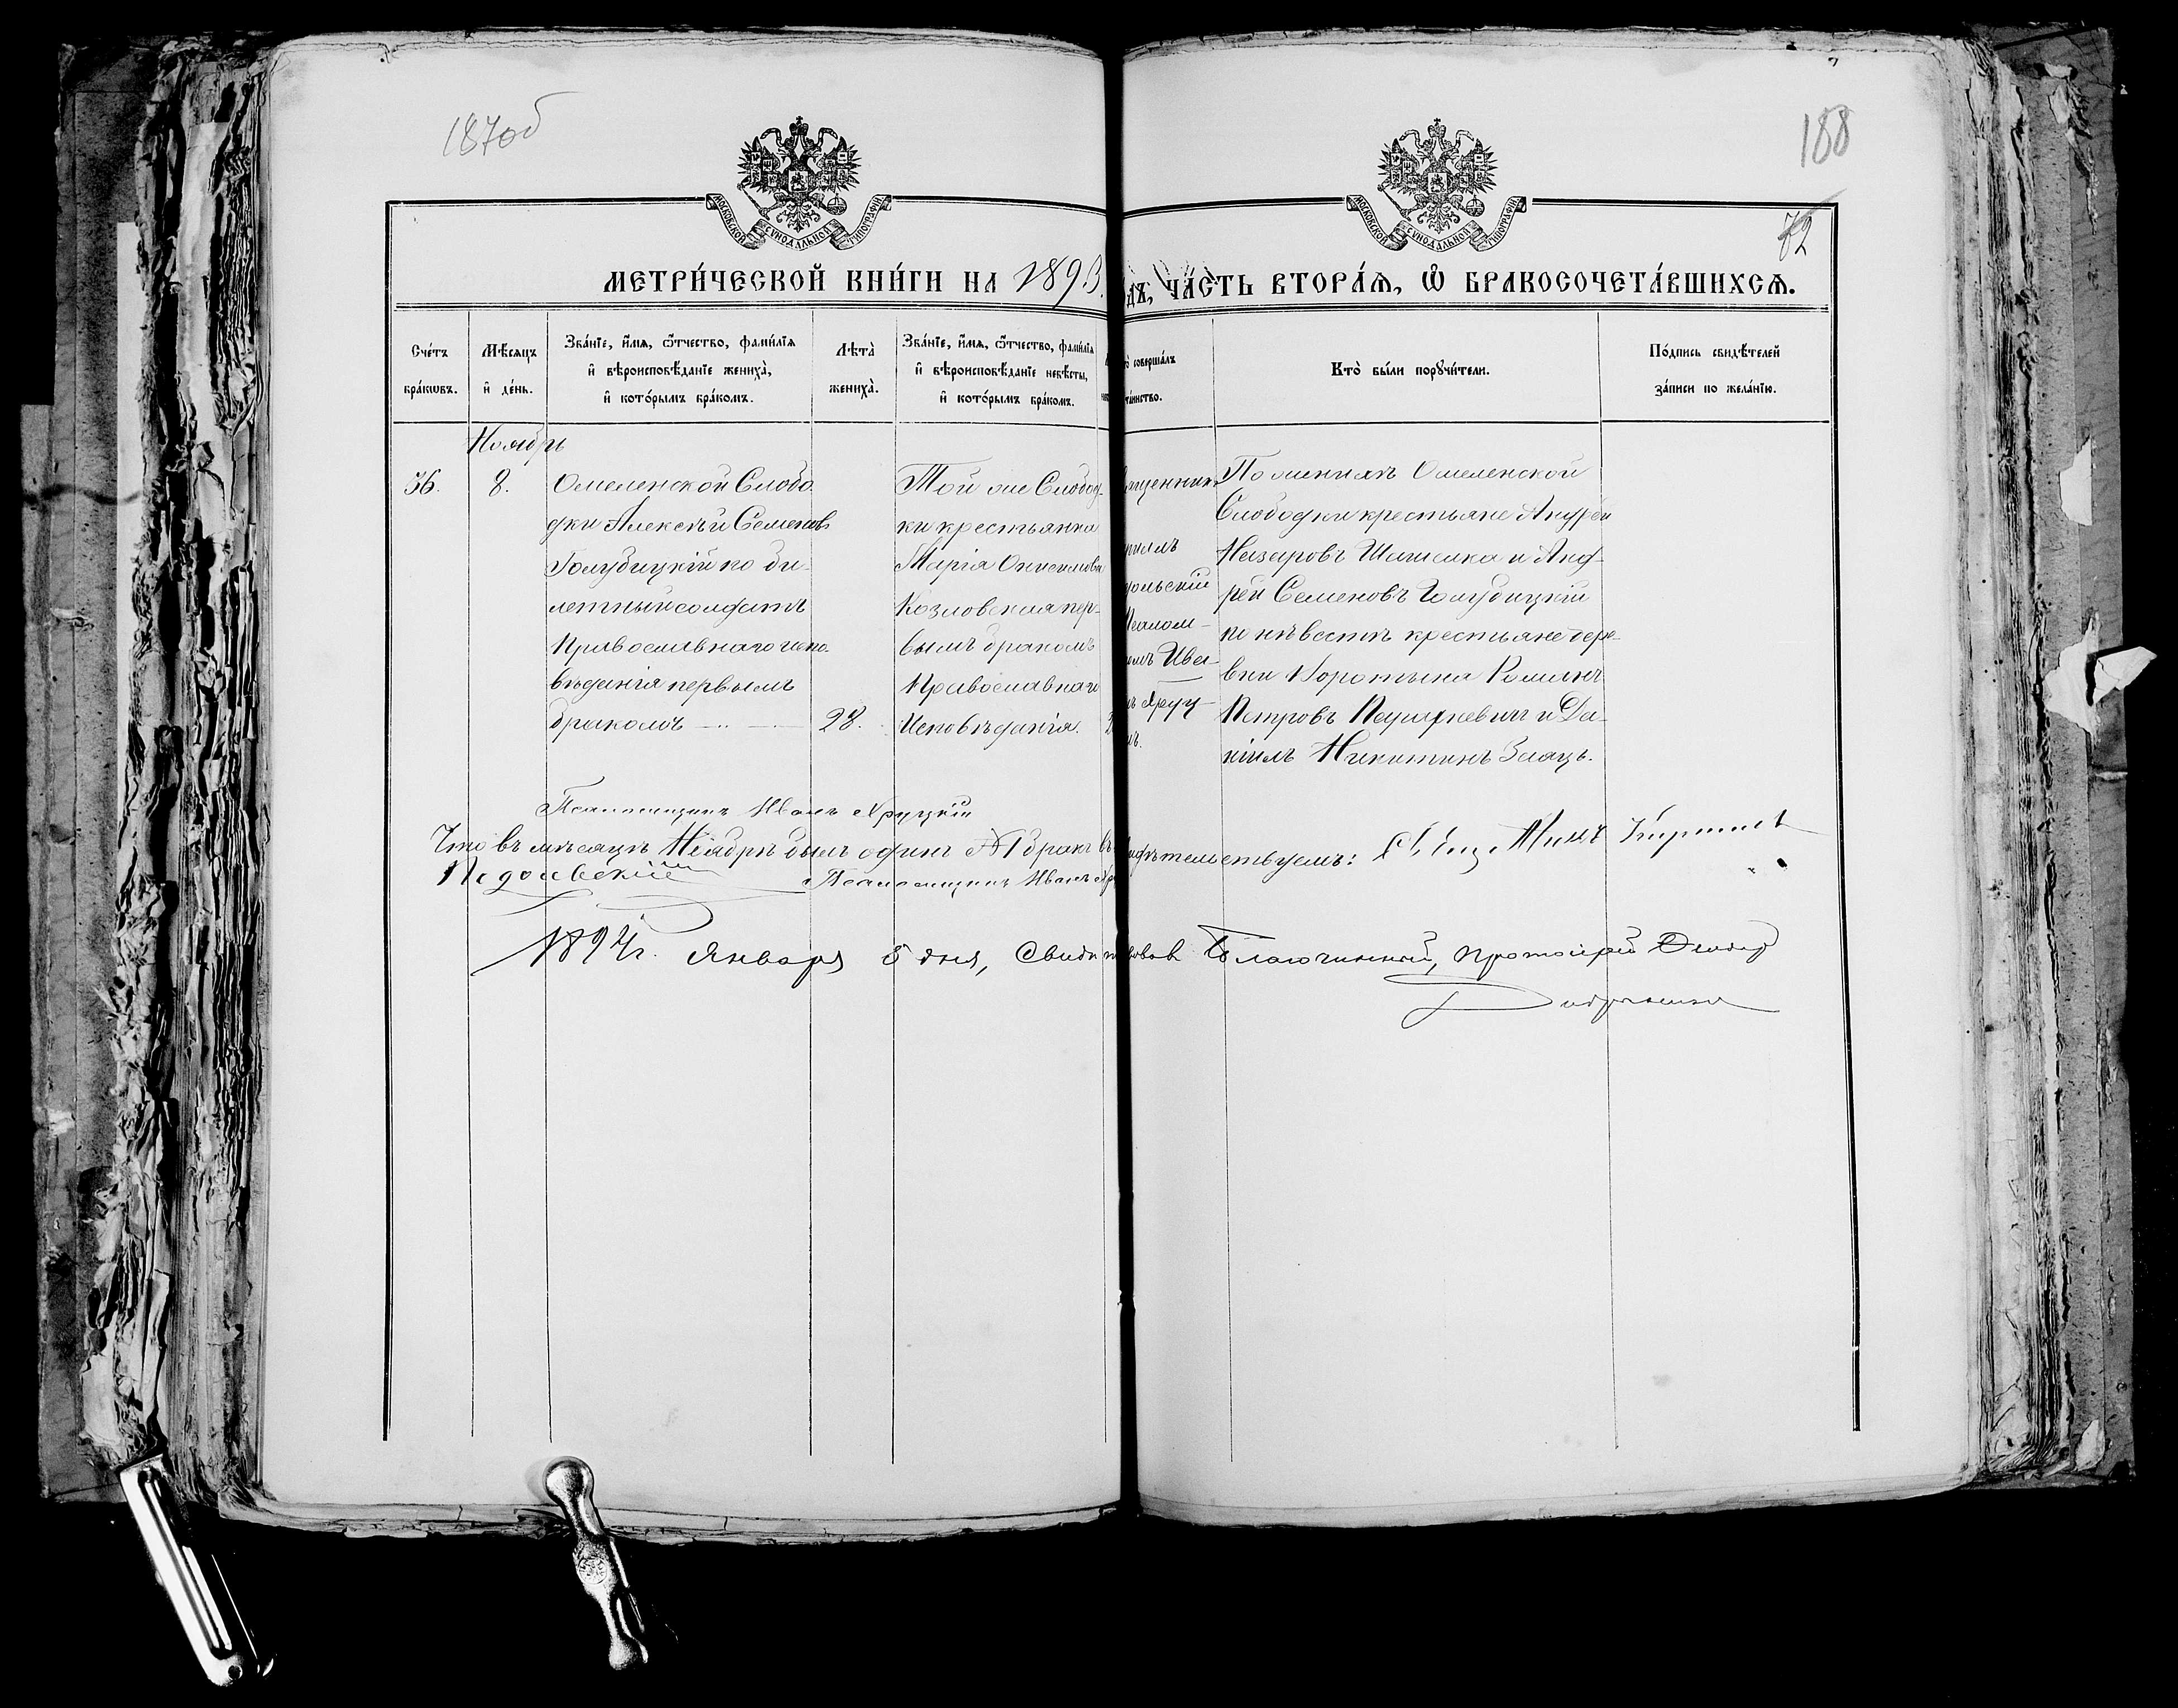 187об
188
72
МОСКОВСКОЙ СѴНОДАЛЬНОЙ ТИПОГРАФІИ
МОСКОВСКОЙ СѴНОДАЛЬНОЙ ТИПОГРАФІИ
МЕТРИ́ЧЕСКОЙ КНИ́ГИ НА 1893
ЧА́СТЬ ВТОРА́Ѧ, Ѽ БРАКОСОЧЕТА́ВШИХСѦ.
Сче́тъ
бра́кѡвъ.
Мѣ́сѧцъ
и҆ де́нь.
Зва́нїе, и҆́мѧ, ѻ҆́тчество, фами́лїѧ
и҆ вѣроисповѣ́данїе жениха̀,
и҆ кото́рымъ бра́комъ.
Лѣта̀
жениха̀.
Зва́нїе, и҆́мѧ, ѻ҆́тчество, фами́лїѧ
и҆ вѣроисповѣ́данїе невѣ́сты,
и҆ кото́рымъ бра́комъ.
соверша́лъ
та́инство.
Кто̀ бы́ли порꙋчи́тели.
По́дпись свидѣ́телей
за́писи по жела́нїю.
Ноябрь
36.
8.
Омеленской Слобо
дки Алексѣй Семеновъ
Голубицкій по би-
летный солдатъ
Православнаго испо
вѣданія первымъ
бракомъ
28.
Той же Слобод-
ки крестьянка
Марія Онисимова
Козловская пер-
вымъ бракомъ
Православнаго
Исповѣданія.
ященникъ
рилъ
дольскій
Псалом-
емъ Ива-
ъ Хруц-
По женихѣ Омеленской
Слободки крестьяне Андрей
Назаровъ и Анд-
рей Семеновъ Голубицкій
по невѣстѣ крестьяне дере-
вни Воротына Романъ
Петровъ и Да-
ніилъ Никитинъ Заяцъ.
Псаломщикъ Иванъ Хруцкій
Что въ мѣсяцѣ Ноябрѣ былъ одинъ №1 бракъ въ
идѣтельствуемъ: Свящ. Кириллъ
Подольскій
Псаломщикъ Иванъ Хр
1894 г. Января 5 дня, Свидѣтельствовалъ Благочинный, протоіерей